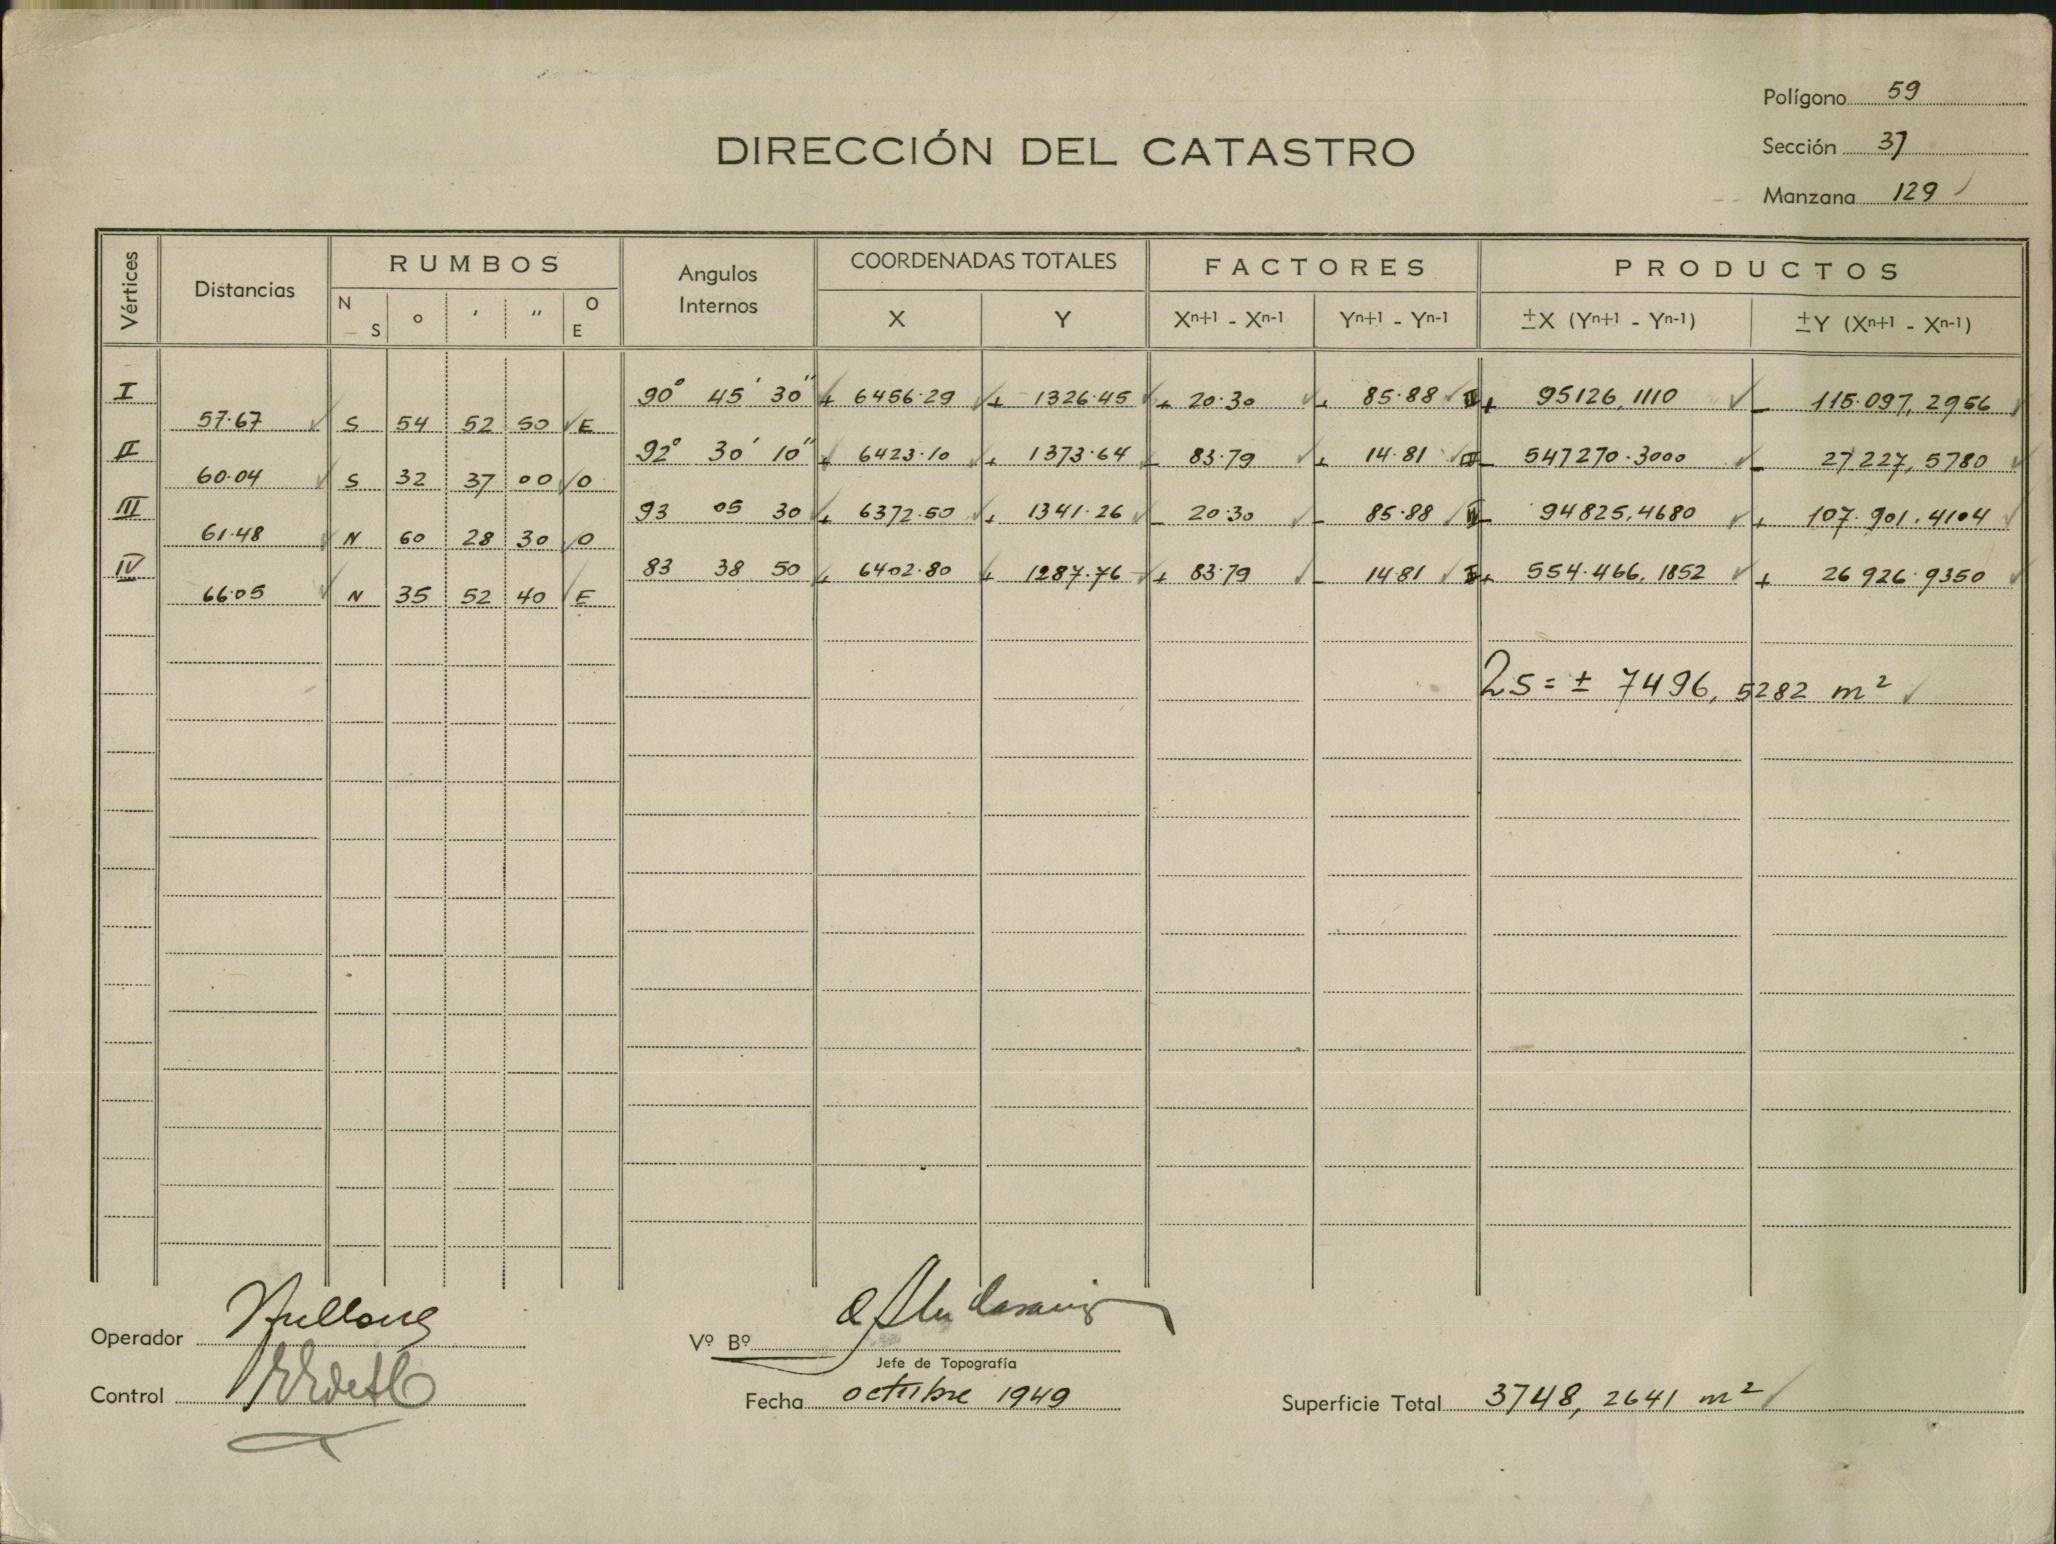 Polígono 59
DIRECCIÓN DEL CATASTRO
Sección 37
Manzana 129
Vértices Distancias RUMBOS Angulos Internos COORDENADAS TOTALES FACTORES PRODUCTOS
N S ° ' " O E X Y Xn+1 - Xn-1 Yn+1 - Yn-1 ±X (Yn+1 - Yn-1) ±Y (Xn+1 - Xn-1)
I 90° 45' 30" + 6456.29 + 1326.45 + 20.30 + 85.88 + 95126,1110 - 115.097,2956
57.67 S 54 52 50 E
II 92° 30' 10" + 6423.10 + 1373.64 - 83.79 + 14.81 - 547270.3000 - 27227,5780
60.04 S 32 37 00 O
III 93 05 30 + 6372.50 + 1341.26 - 20.30 - 85.88 - 94825,4680 + 107.901.4104
61.48 N 60 28 30 O
IV 83 38 50 + 6402.80 + 1287.76 + 83.79 - 14.81 + 554.466,1852 + 26926.9350
66.05 N 35 52 40 E
2S = ± 7496,5282 m²
Operador
Vº Bº
Jefe de Topografía
Control
Fecha octubre 1949
Superficie Total 3748,2641 m²